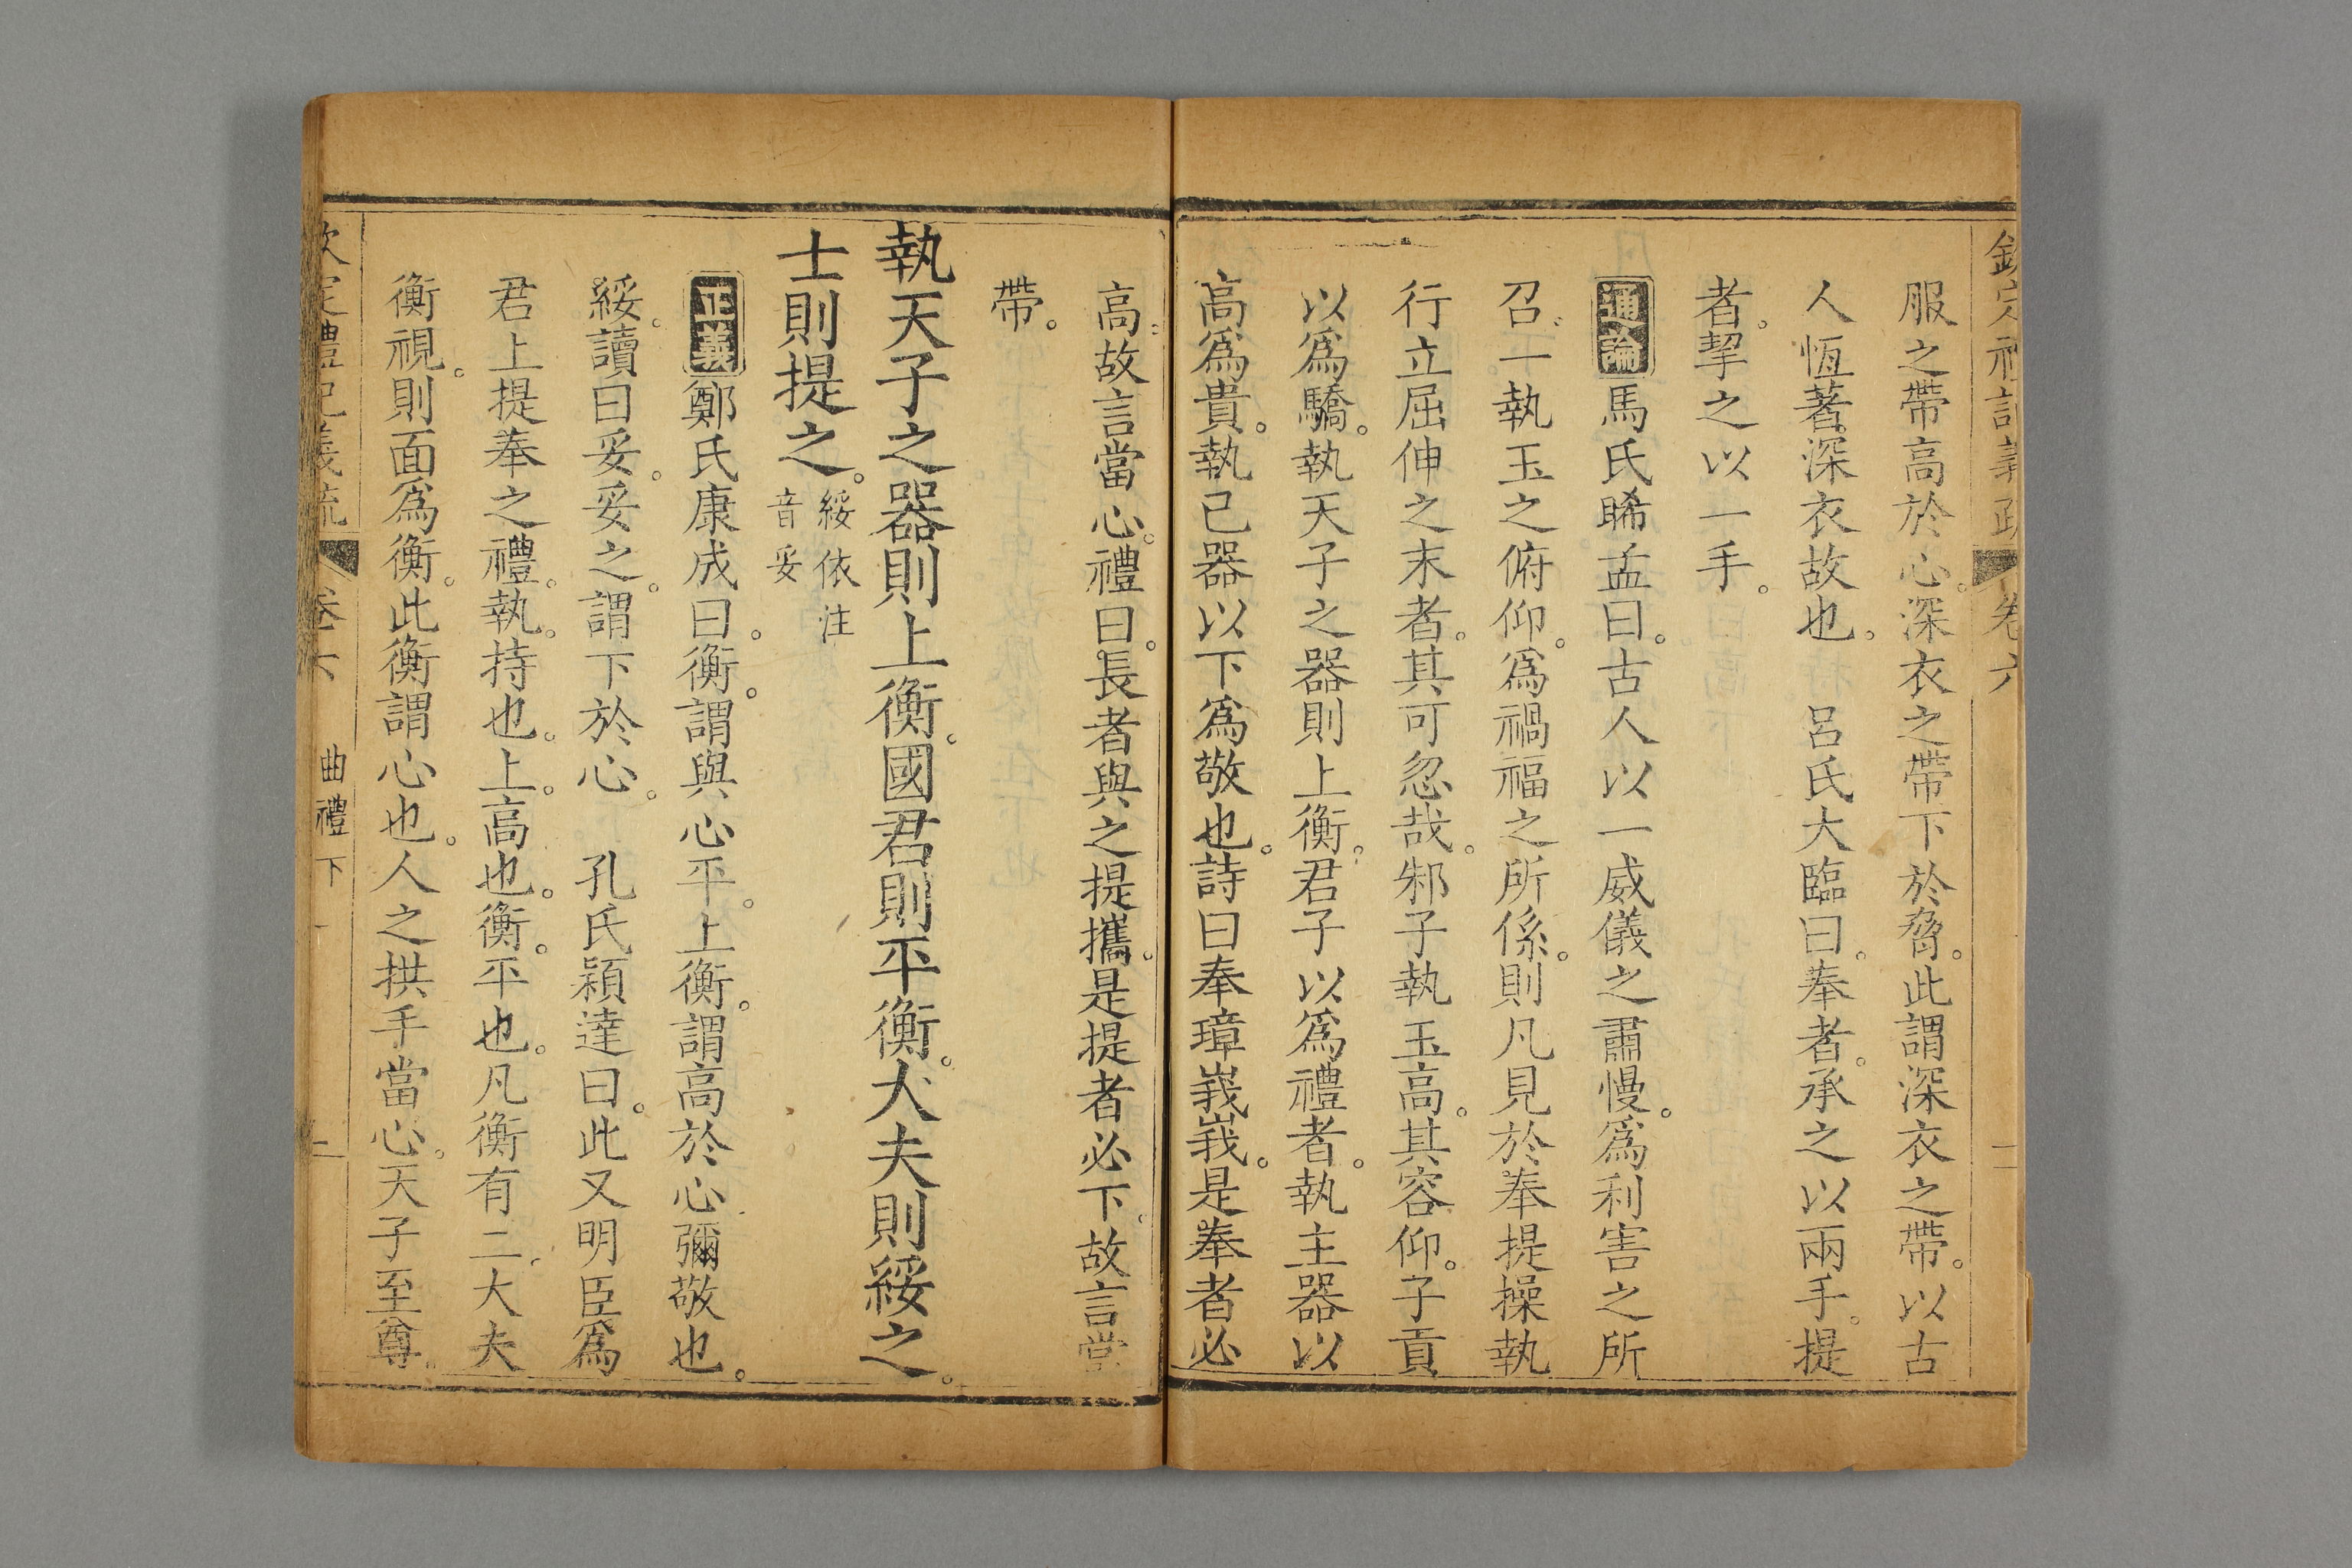 欽定禮記義疏 卷六
服之帶高於心。深衣之帶下於脅。此謂深衣之帶。以古
人恆著深衣故也。 呂氏大臨曰。奉者。承之以兩手。提
者。挈之以一手。
通論馬氏睎孟曰。古人以一威儀之肅慢。爲利害之所
召。一執玉之俯仰。爲禍福之所係。則凡見於奉提操執
行立屈伸之末者。其可忽哉。邾子執玉高。其容仰。子貢
以爲驕。執天子之器則上衡。君子以爲禮者。執主器以
高爲貴。執己器以下爲敬也。詩曰奉璋峩峩。是奉者必
高。故言當心。禮曰。長者與之提攜。是提者必下。故言當
帶。
執天子之器則上衡。國君則平衡。大夫則綏之。
士則提之。綏依注
音妥
正義鄭氏康成曰。衡。謂與心平。上衡。謂高於心彌敬也。
綏。讀曰妥。妥之。謂下於心。 孔氏穎達曰。此又明臣爲
君上提奉之禮。執。持也。上。高也。衡。平也。凡衡有二。大夫
衡視。則面爲衡。此衡謂心也。人之拱手當心。天子至尊。
欽定禮記義疏 卷六 曲禮下 二